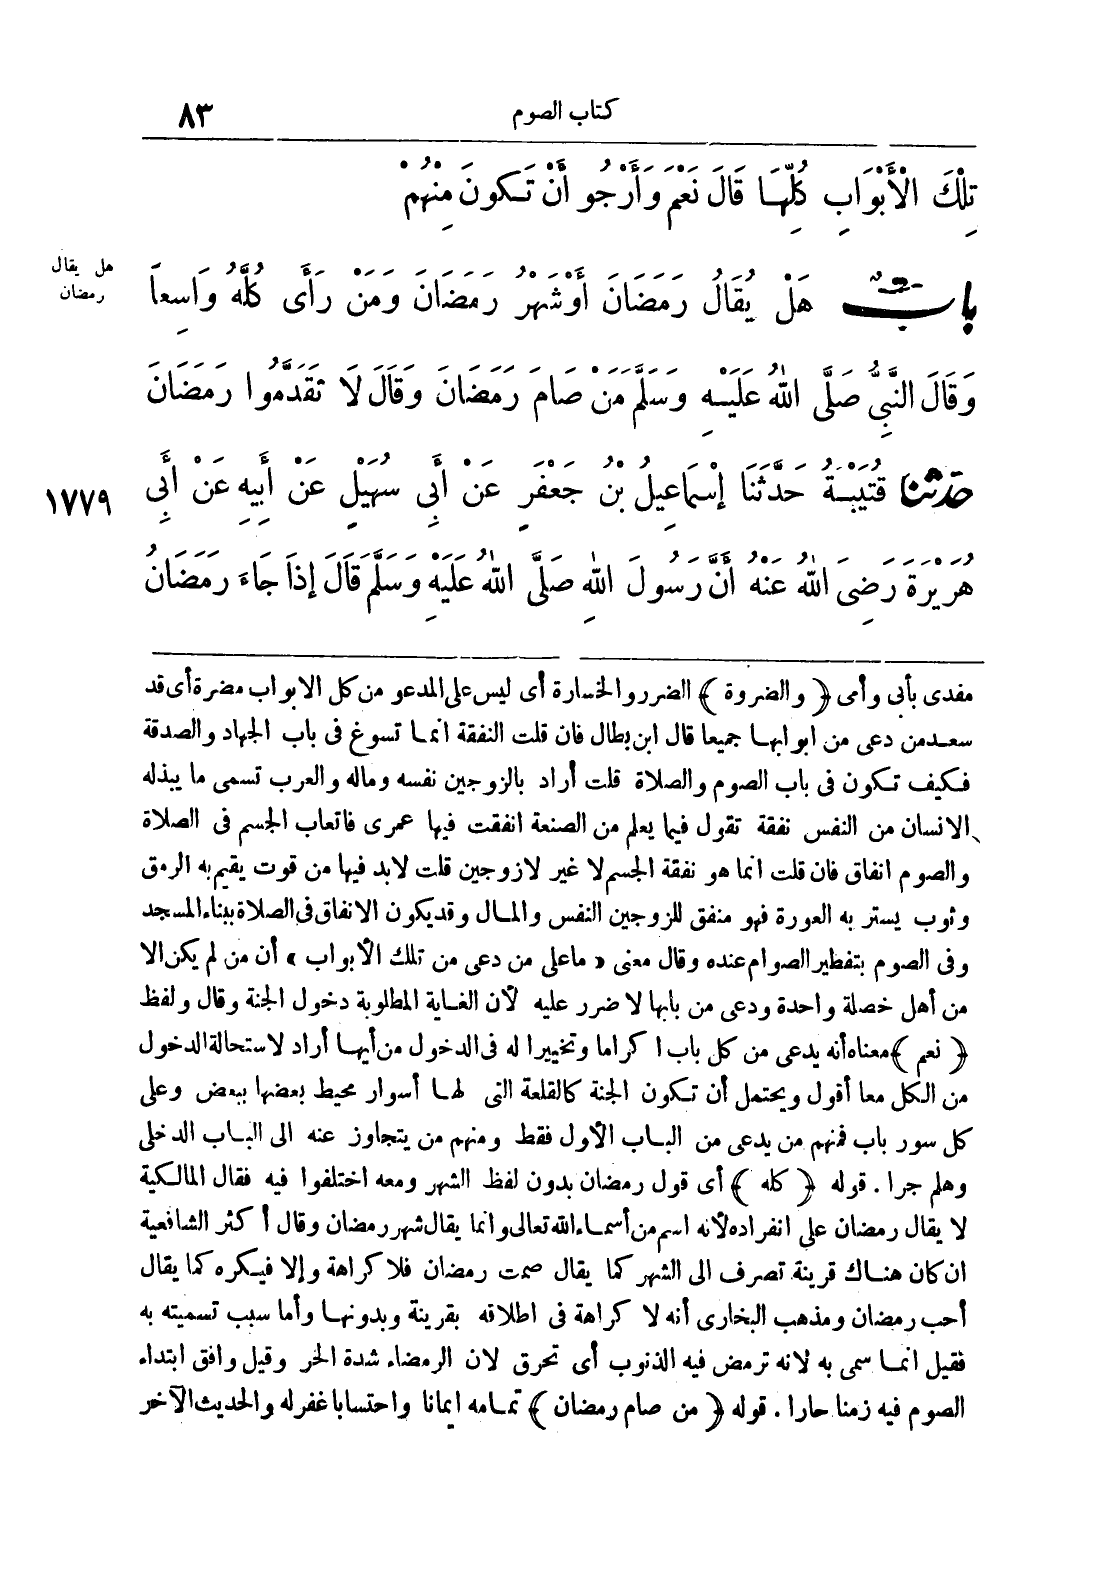 كتاب الصوم ٨٣
تِلْكَ الْأَبْوَابِ كُلِّهَا قَالَ نَعَمْ وَأَرْجُو أَنْ تَكُونَ مِنْهُمْ
بابٌ هَلْ يُقَالُ رَمَضَانَ أَوْ شَهْرُ رَمَضَانَ وَمَنْ رَأَى كُلَّهُ وَاسِعاً
هل يقال
رمضان
وَقَالَ النَّبِيُّ صَلَّى اللهُ عَلَيْهِ وَسَلَّمَ مَنْ صَامَ رَمَضَانَ وَقَالَ لَا تَقَدَّمُوا رَمَضَانَ
حَدَّثَنَا قُتَيْبَةُ حَدَّثَنَا إِسْمَاعِيلُ بْنُ جَعْفَرٍ عَنْ أَبِي سُهَيْلٍ عَنْ أَبِيهِ عَنْ أَبِي
١٧٧٩
هُرَيْرَةَ رَضِيَ اللهُ عَنْهُ أَنَّ رَسُولَ اللهِ صَلَّى اللهُ عَلَيْهِ وَسَلَّمَ قَالَ إِذَا جَاءَ رَمَضَانُ
مفدى بأبى وأمى ﴿والضروة﴾ الضرر والخسارة أى ليس على المدعو من كل الابواب مضرة أى قد
سعد من دعى من ابوابها جميعا قال ابن بطال فان قلت النفقة انما تسوغ فى باب الجهاد والصدقة
فكيف تكون فى باب الصوم والصلاة قلت أراد بالزوجين نفسه وماله والعرب تسمى ما يبذله
الانسان من النفس نفقة تقول فيما يعلم من الصنعة انفقت فيها عمرى فاتعاب الجسم فى الصلاة
والصوم انفاق فان قلت انما هو نفقة الجسم لا غير لا زوجين قلت لابد فيها من قوت يقيم به الرمق
وثوب يستر به العورة فهو منفق للزوجين النفس والمال وقد يكون الانفاق فى الصلاة ببناء المسجد
وفى الصوم بتفطير الصوام عنده وقال معنى «ما على من دعى من تلك الأبواب» أن من لم يكن الا
من أهل خصلة واحدة ودعى من بابها لا ضرر عليه لأن الغاية المطلوبة دخول الجنة وقال ولفظ
﴿نعم﴾ معناه أنه يدعى من كل باب اكراما وتخييرا له فى الدخول من أيها أراد لاستحالة الدخول
من الكل معا أقول ويحتمل أن تكون الجنة كالقلعة التى لها أسوار محيط بعضها ببعض وعلى
كل سور باب فمنهم من يدعى من الباب الأول فقط ومنهم من يتجاوز عنه الى الباب الدخلى
وهلم جرا. قوله ﴿كله﴾ أى قول رمضان بدون لفظ الشهر ومعه اختلفوا فيه فقال المالكية
لا يقال رمضان على انفراده لأنه اسم من أسماء الله تعالى وانما يقال شهر رمضان وقال أكثر الشافعية
ان كان هناك قرينة تصرف الى الشهر كما يقال صمت رمضان فلا كراهة وإلا فيكره كما يقال
أحب رمضان ومذهب البخارى أنه لا كراهة فى اطلاقه بقرينة وبدونها وأما سبب تسميته به
فقيل انما سمى به لانه ترمض فيه الذنوب أى تحرق لان الرمضاء شدة الحر وقيل وافق ابتداء
الصوم فيه زمنا حارا. قوله ﴿من صام رمضان﴾ تمامه ايمانا واحتسابا غفر له والحديث الآخر